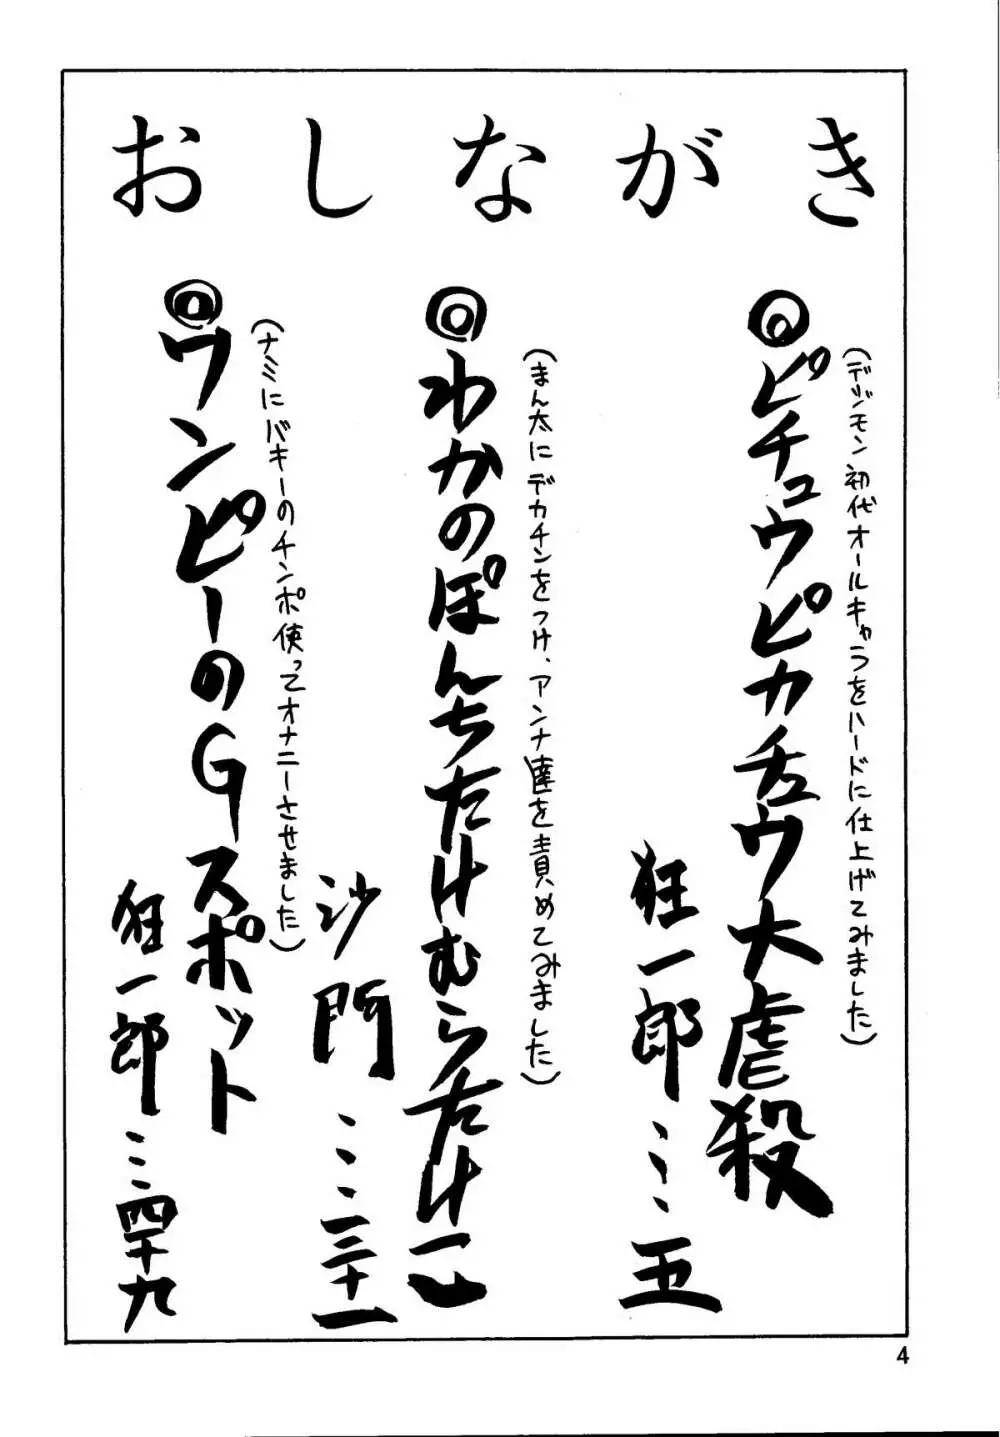 おしながき
◎ピチュウピカチュウ大虐殺
(デジモン初代オールキャラをハードに仕上げてみました)
狂一郎……五
◎わかのぽんちたけむらたけ一
(まん太にデカチンをつけ、アンナ達を責めてみました)
沙門……三十一
◎ワンピーのGスポット
(ナミにバキーのチンポ使ってオナニーさせました)
狂一郎……四十九
4